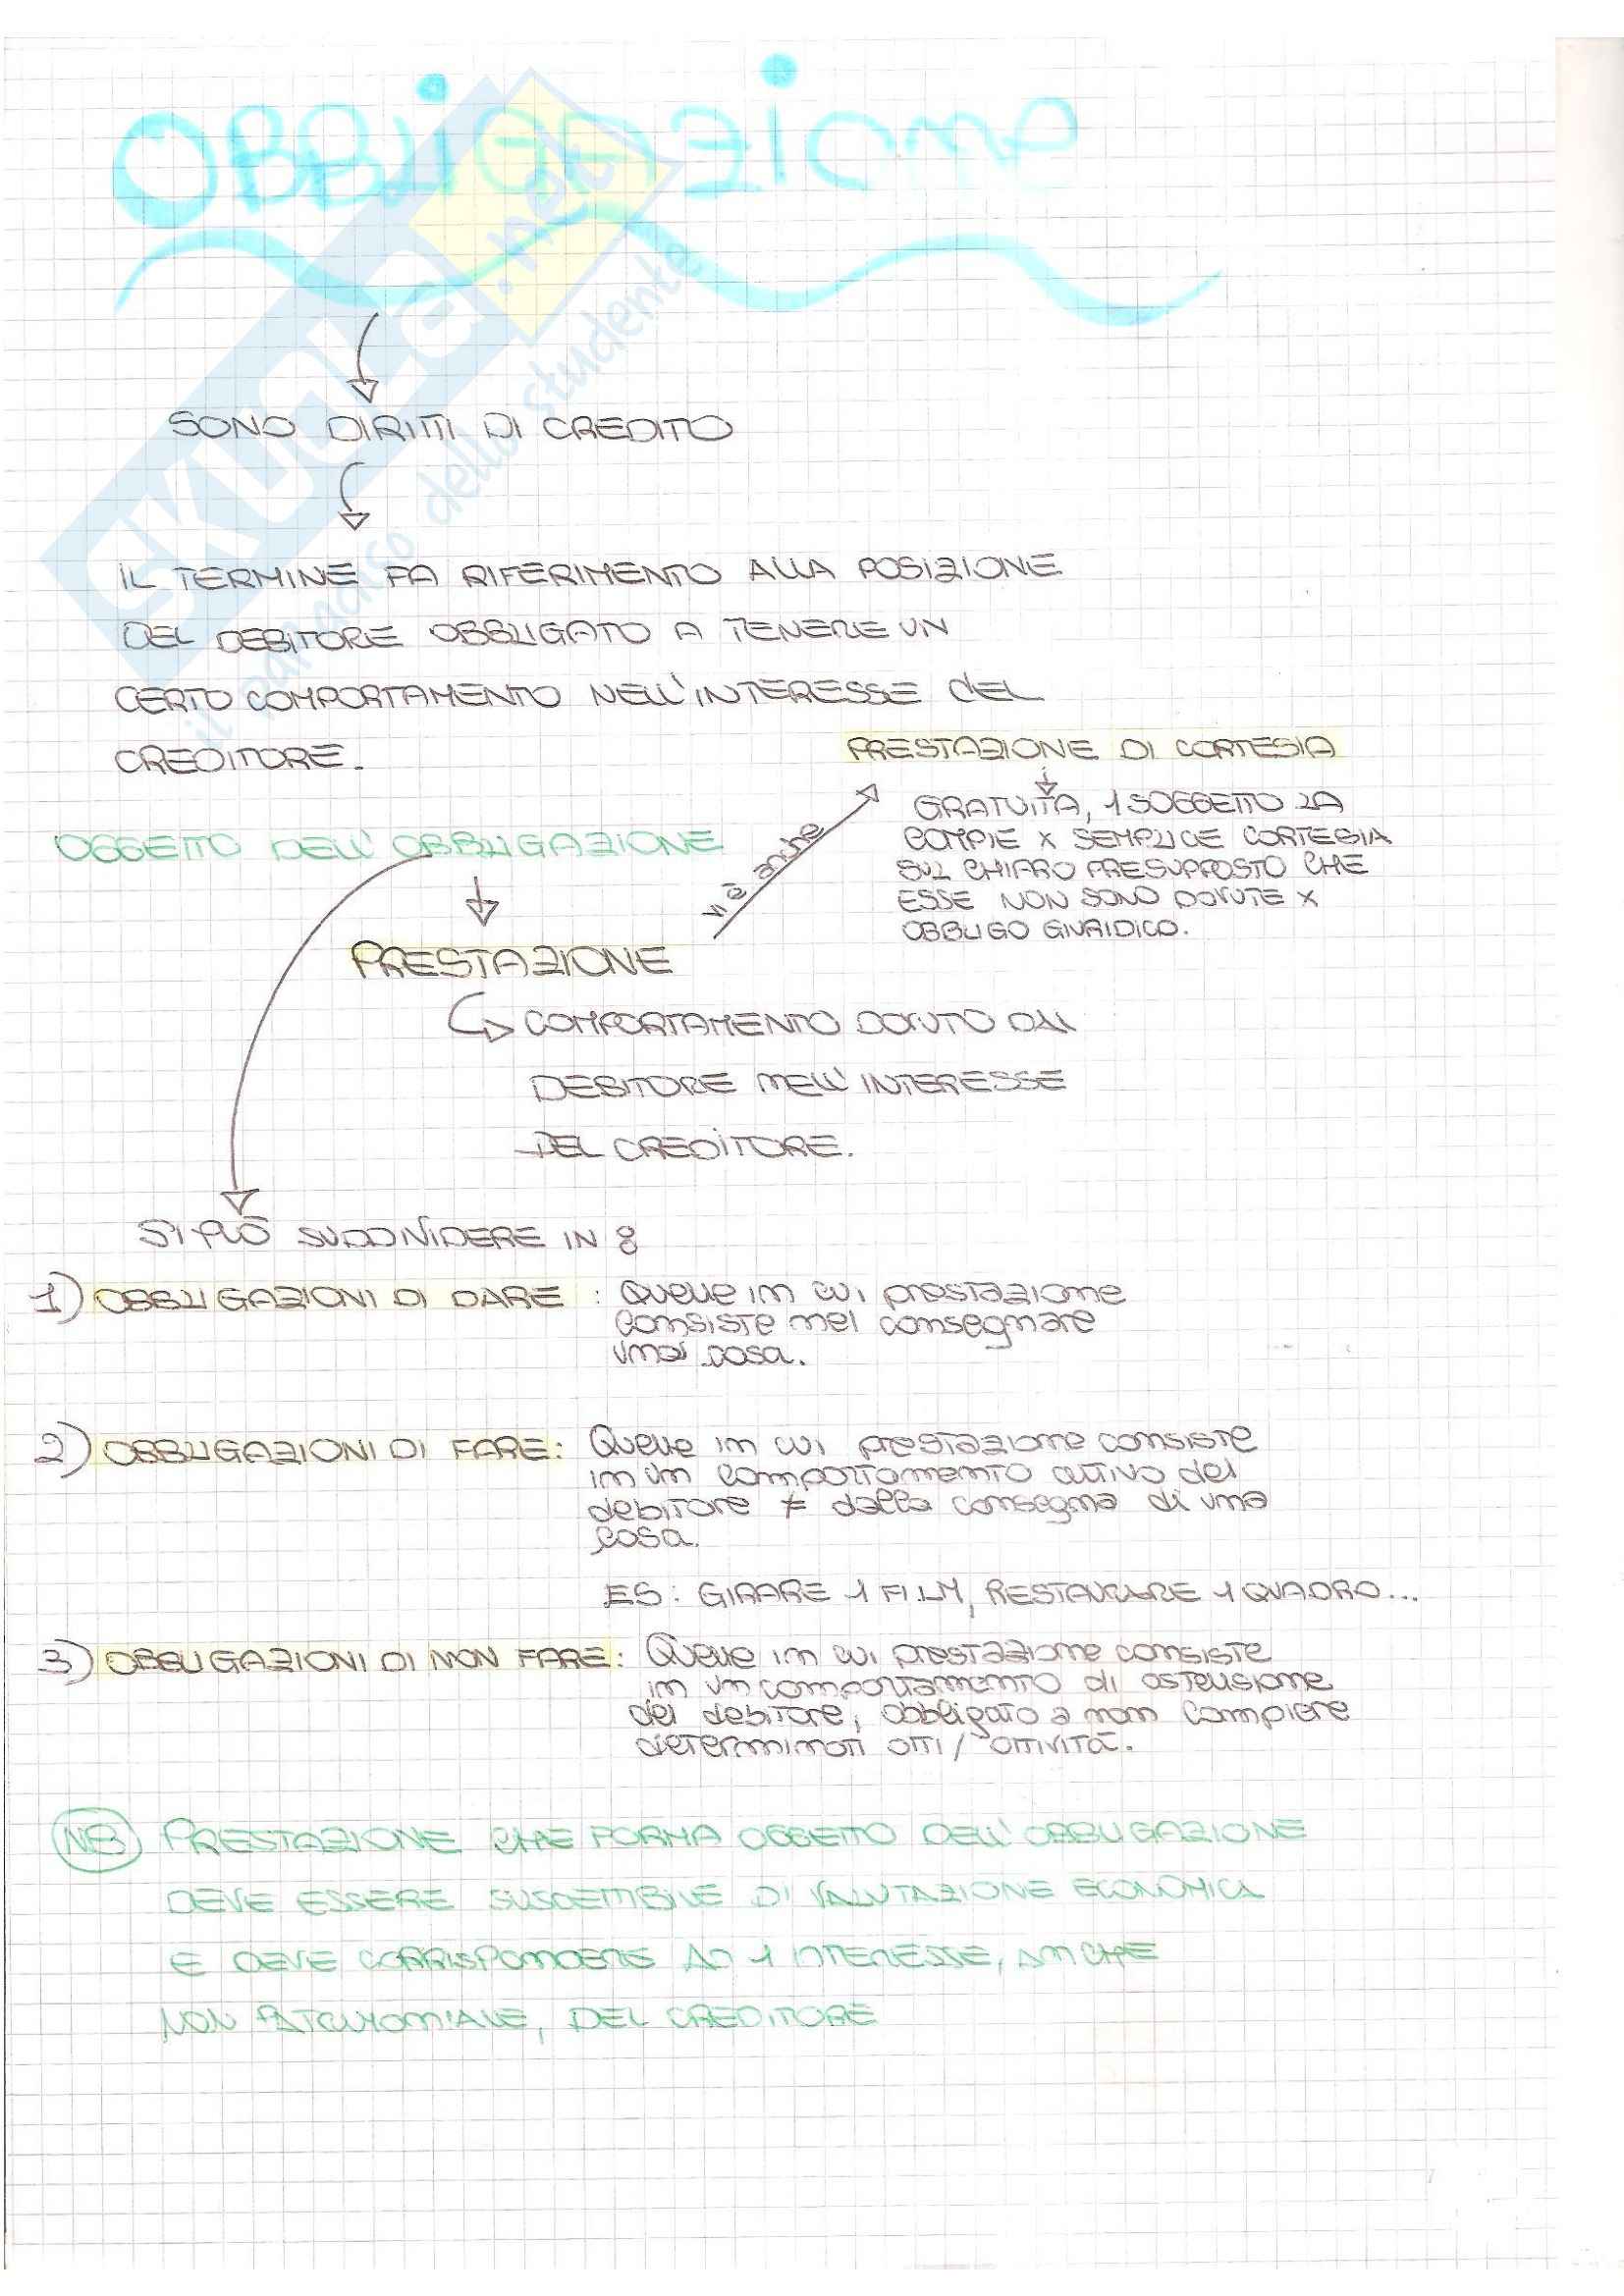 OBBLIGAZIONE
SKUOLA.net
il paradiso dello studente
SONO DIRITTI DI CREDITO
IL TERMINE FA RIFERIMENTO ALLA POSIZIONE
DEL DEBITORE OBBLIGATO A TENERE UN
CERTO COMPORTAMENTO NELL'INTERESSE DEL
CREDITORE.
PRESTAZIONE DI CORTESIA
GRATUITA, 1 SOGGETTO LA
COMPIE X SEMPLICE CORTESIA
SUL CHIARO PRESUPPOSTO CHE
ESSE NON SONO DOVUTE X
OBBLIGO GIURIDICO.
v'è anche
OGGETTO DELL'OBBLIGAZIONE
PRESTAZIONE
COMPORTAMENTO DOVUTO DAL
DEBITORE NELL'INTERESSE
DEL CREDITORE.
SI PUÒ SUDDIVIDERE IN :
1) OBBLIGAZIONI DI DARE : Quelle in cui prestazione
consiste nel consegnare
una cosa.
2) OBBLIGAZIONI DI FARE: Quelle in cui prestazione consiste
in un comportamento attivo del
debitore ≠ dalla consegna di una
cosa.
ES: GIRARE 1 FILM, RESTAURARE 1 QUADRO...
3) OBBLIGAZIONI DI NON FARE: Quelle in cui prestazione consiste
in un comportamento di astensione
del debitore, obbligato a non compiere
determinati atti/attività.
NB PRESTAZIONE CHE FORMA OGGETTO DELL'OBBLIGAZIONE
DEVE ESSERE SUSCETTIBILE DI VALUTAZIONE ECONOMICA
E DEVE CORRISPONDERE AD 1 INTERESSE, ANCHE
NON PATRIMONIALE, DEL CREDITORE